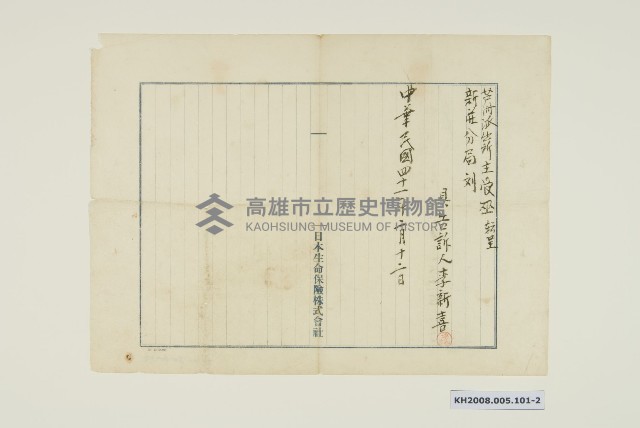 芦洲派出所主管巫 轉呈
新莊分局 刘
具告訴人李新喜
中華民國四十一年二月十二日
日本生命保險株式會社
高雄市立歷史博物館
KAOHSIUNG MUSEUM OF HISTORY
KH2008.005.101-2